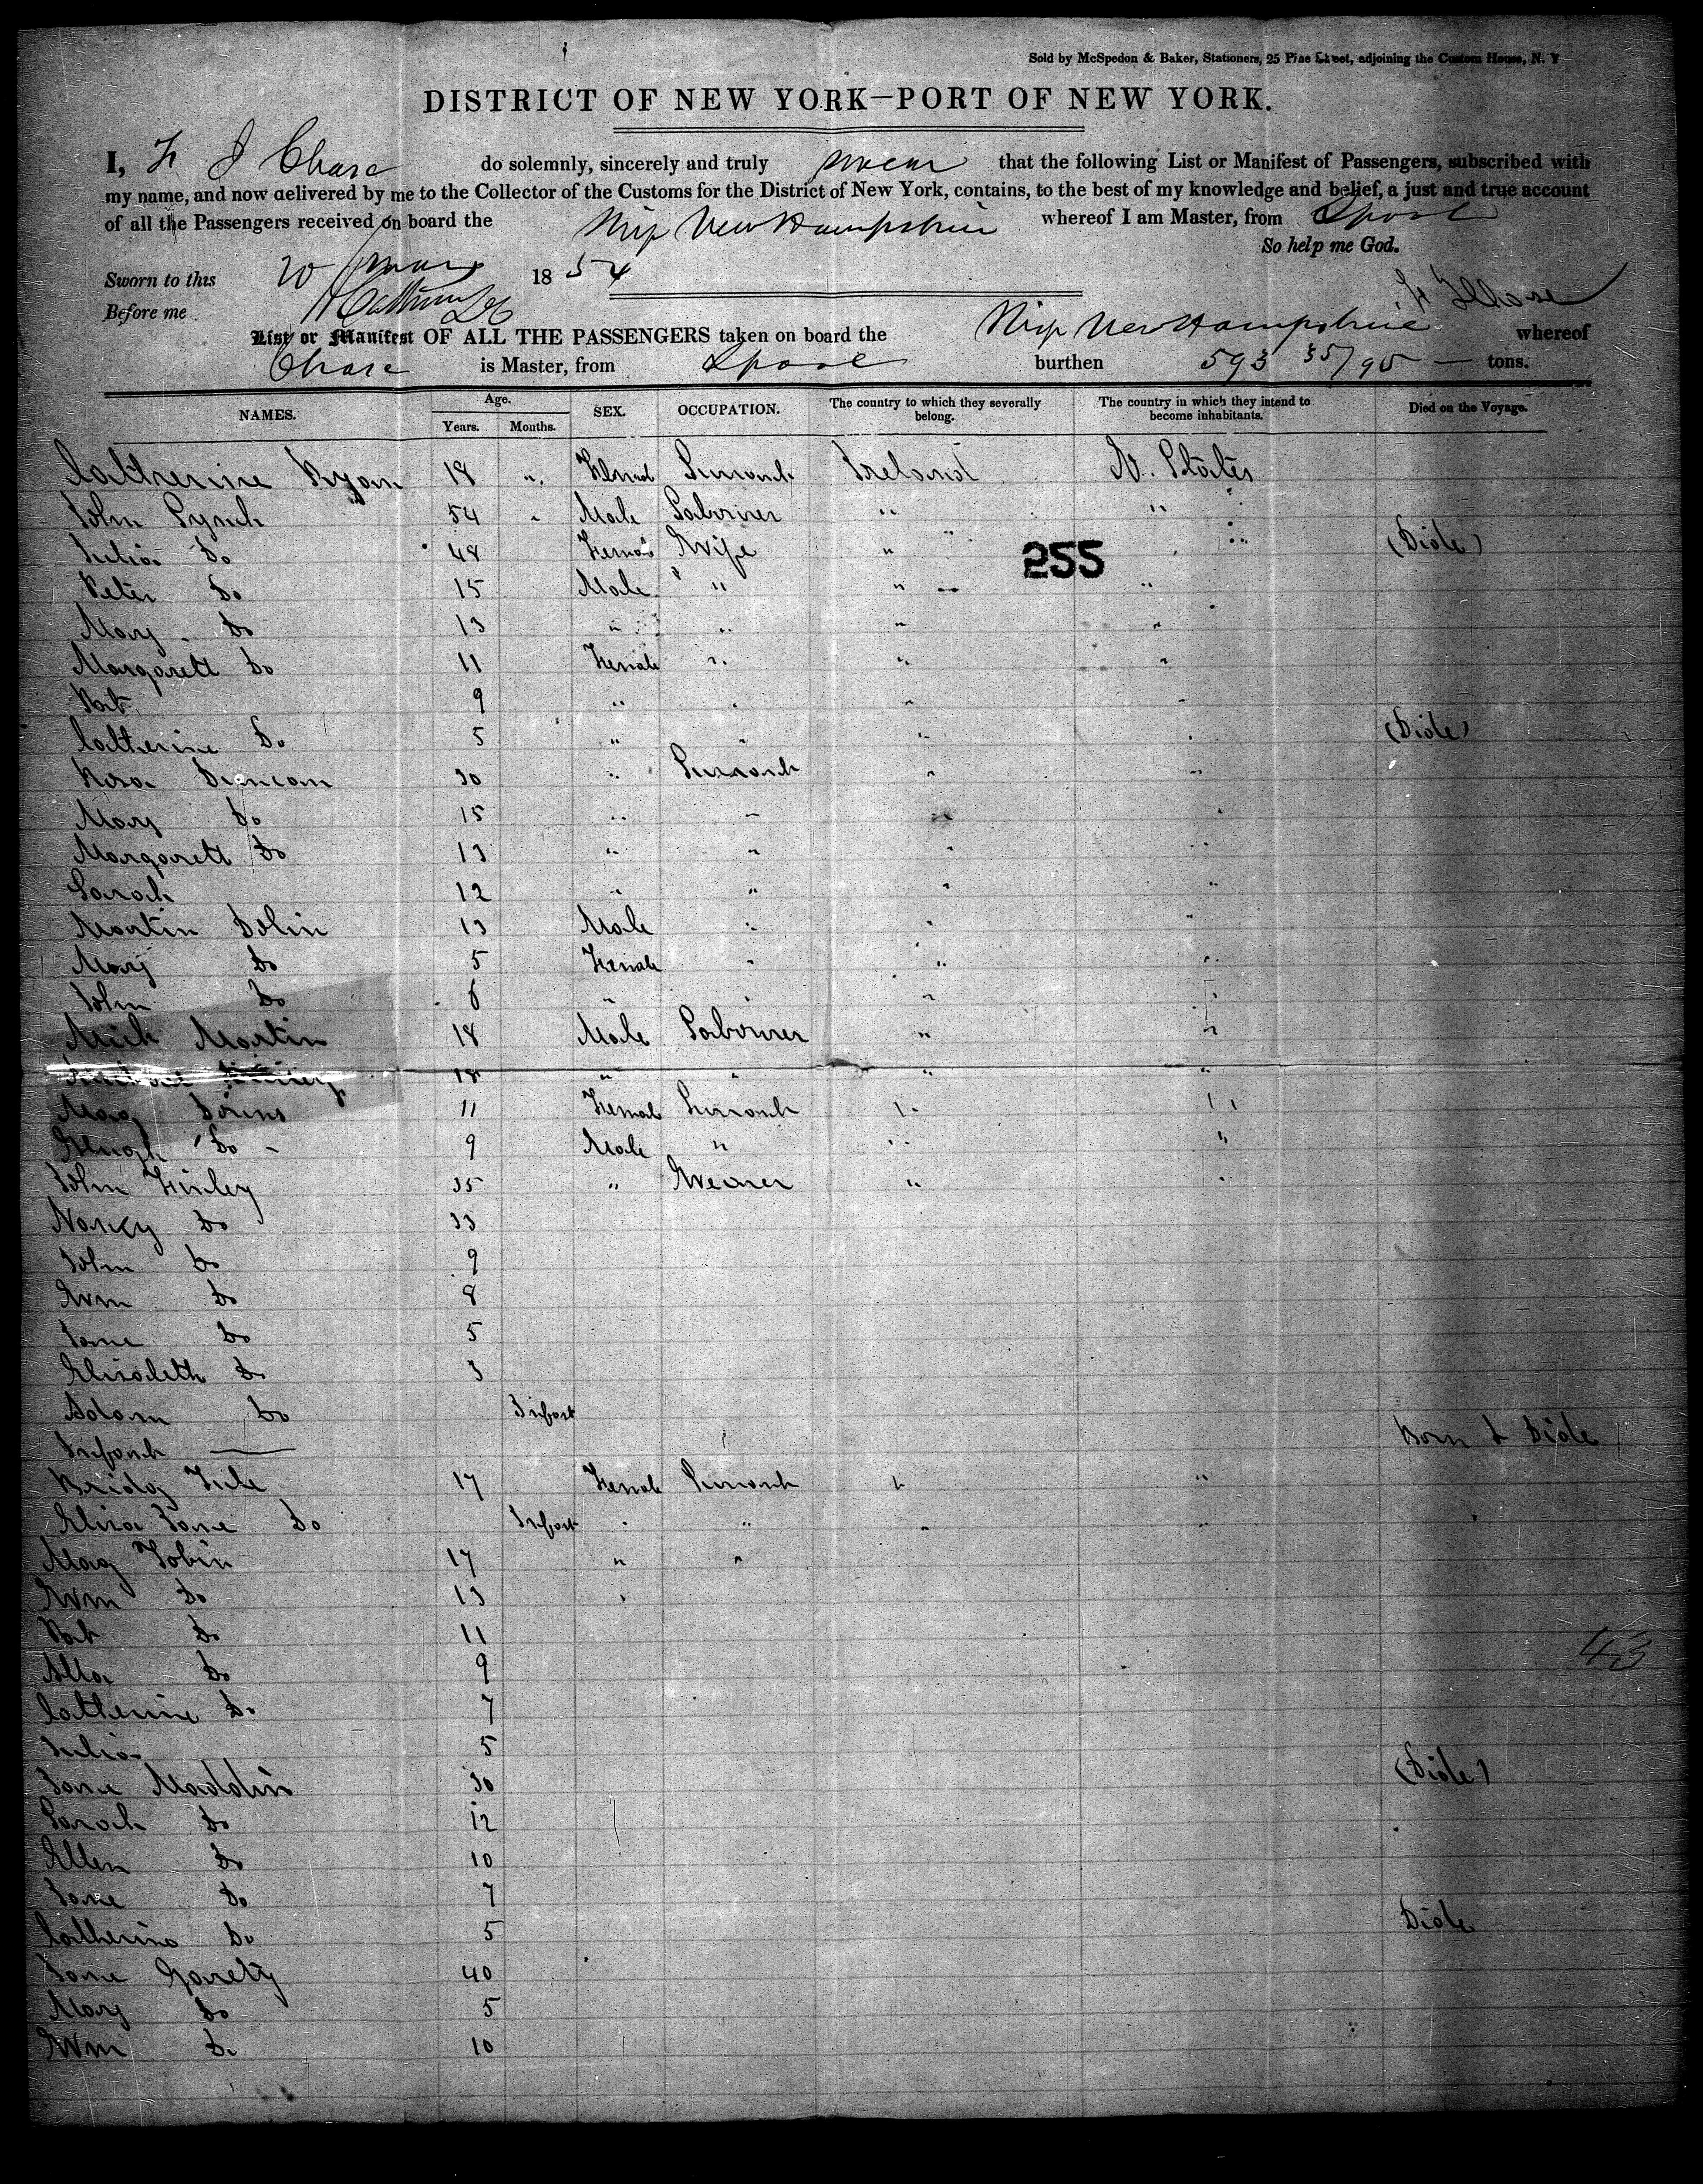 Sold by McSpedon & Baker, Stationers, 25 Pine Street, adjoining the Custom House, N. Y
DISTRICT OF NEW YORK—PORT OF NEW YORK.
I, F J Chase do solemnly, sincerely and truly swear that the following List or Manifest of Passengers, subscribed with
my name, and now delivered by me to the Collector of the Customs for the District of New York, contains, to the best of my knowledge and belief, a just and true account
of all the Passengers received on board the Ship New Hampshire whereof I am Master, from Lpool
So help me God.
Sworn to this 20 1854
Before me
List or Manifest OF ALL THE PASSENGERS taken on board the Ship New Hampshire whereof
Chase is Master, from Lpool burthen 593 35/95 — tons.
NAMES. Age. Years. Months. SEX. OCCUPATION. The country to which they severally belong. The country in which they intend to become inhabitants. Died on the Voyage.
Catherine Ryan 18 " Female Servant Ireland U. States
John Lynch 54 " Male Labourer " "
Julia Do 48 Female Wife " " (Dide)
255
Peter Do 15 Male " " "
Mary Do 13 " " " "
Margarett Do 11 Female " " "
Pat 9 " " " "
Catherine Do 5 " " " " (Dide)
Rosa Duncan 30 " Servant " "
Mary Do 15 " " " "
Margarett Do 13 " " " "
Sarah 12 " " " "
Martin Dolin 13 Male " " "
Mary Do 5 Female " " "
John Do 6 " " " "
Mick Martin 18 Male Labourer " "
18 " " " "
Mag 11 Female Servant " "
Hugh Do 9 Male " " "
John Finley 35 " Weaver " "
Nancy Do 33
John Do 9
Wm Do 8
Jane Do 5
Elisabeth Do 3
Adam Do Infant
Infant — Born & Dide
Bridg 17 Female Servant " "
Eliza Jane Do Infant " " " "
Mag Tobin 17 " "
Wm Do 13 "
Pat Do 11
43
Do 9
Catherine Do 7
Julia 5
Jane Maddin 30 (Dide)
Sarah Do 12
Ellen Do 10
Jane Do 7
Catherine Do 5 Dide
Jane Garety 40
Mary Do 5
Wm Do 10